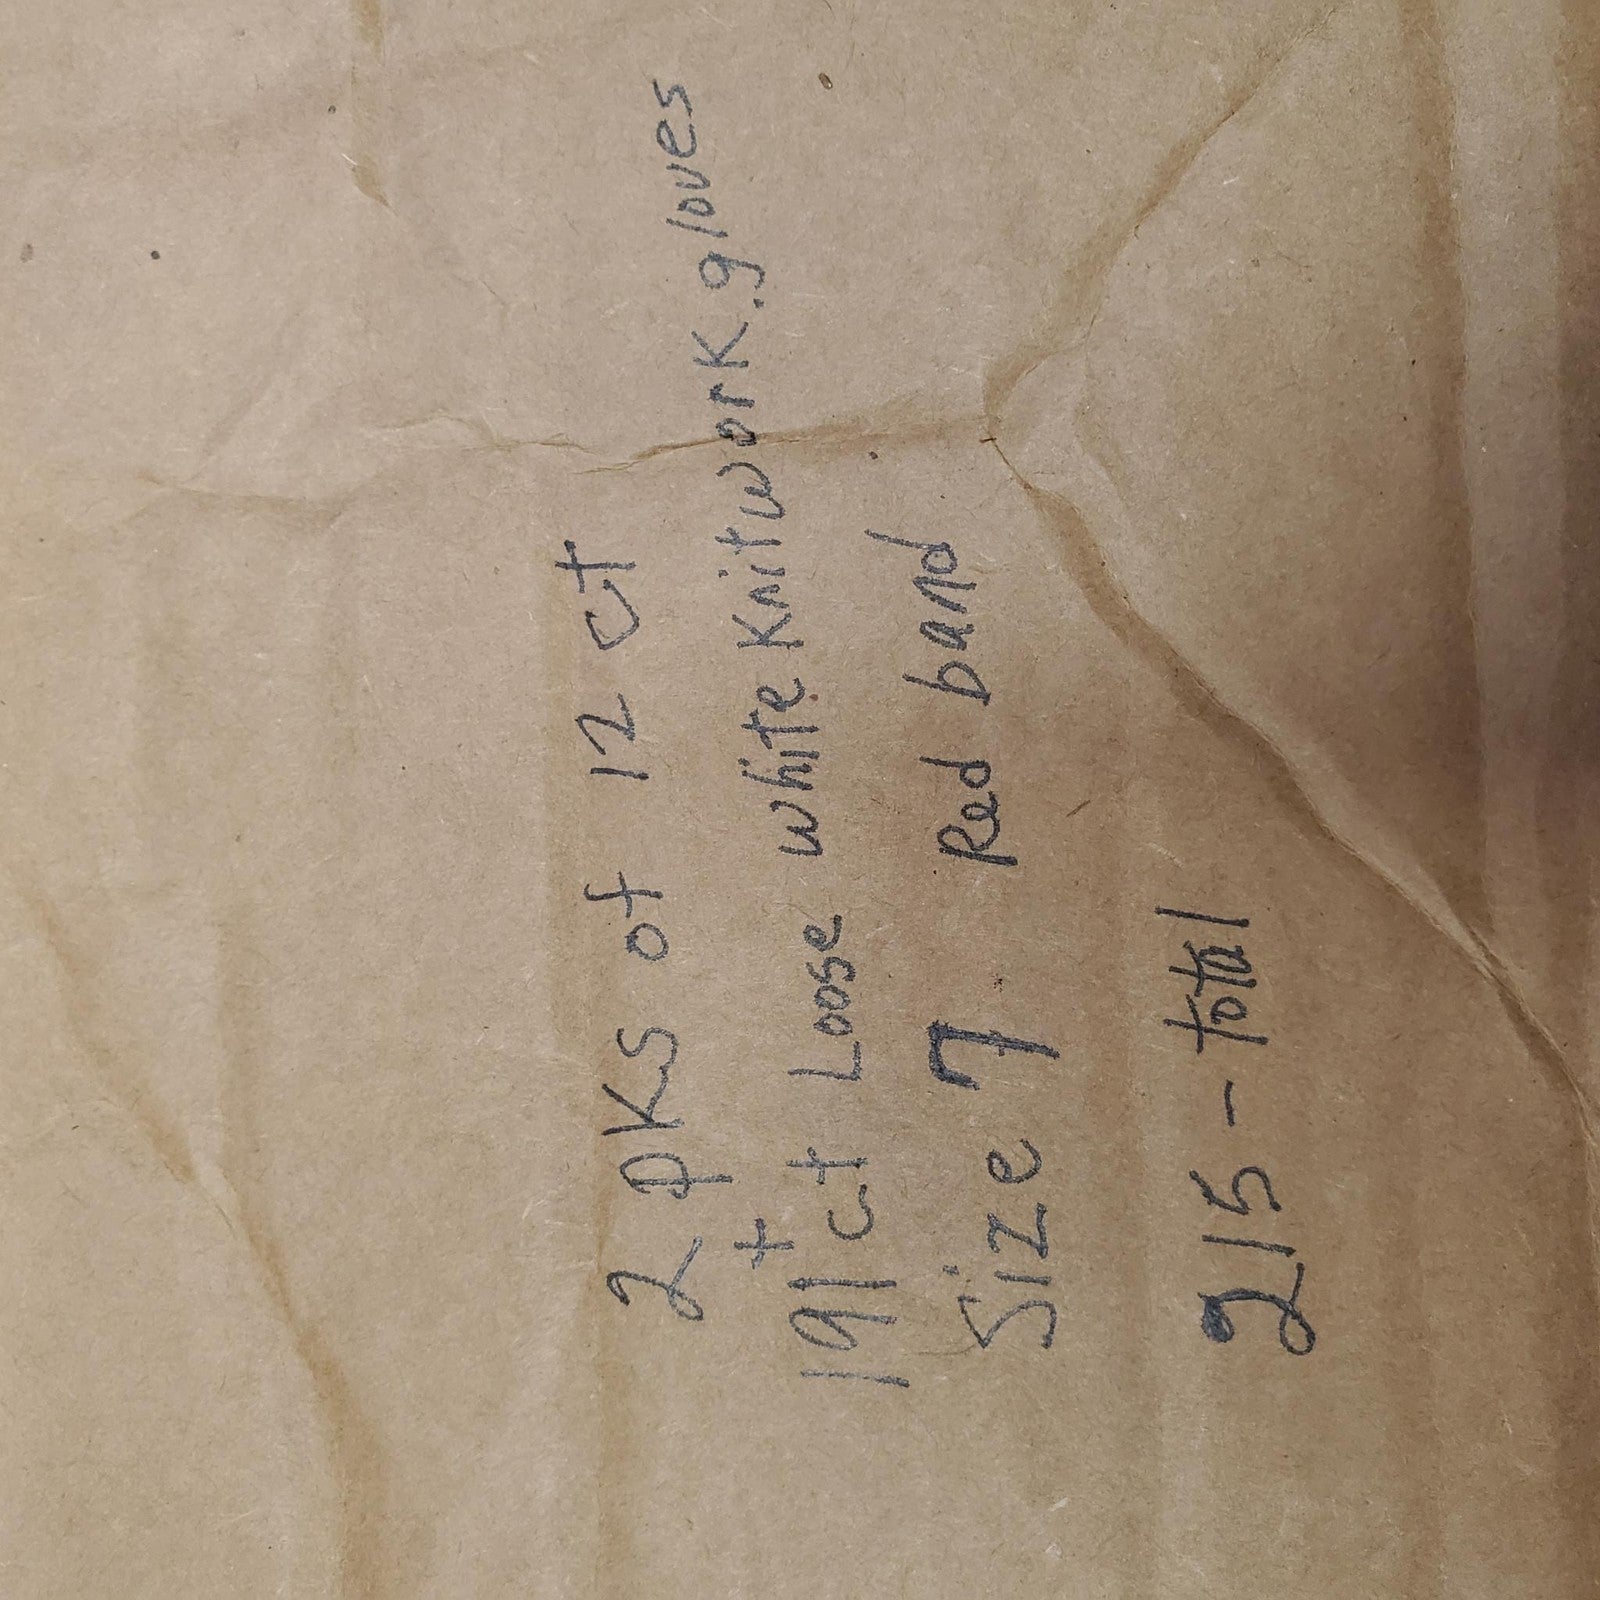 2 pks of 12 ct
+
191ct Loose white Knitwork gloves
Size 7 Red band
215 - total